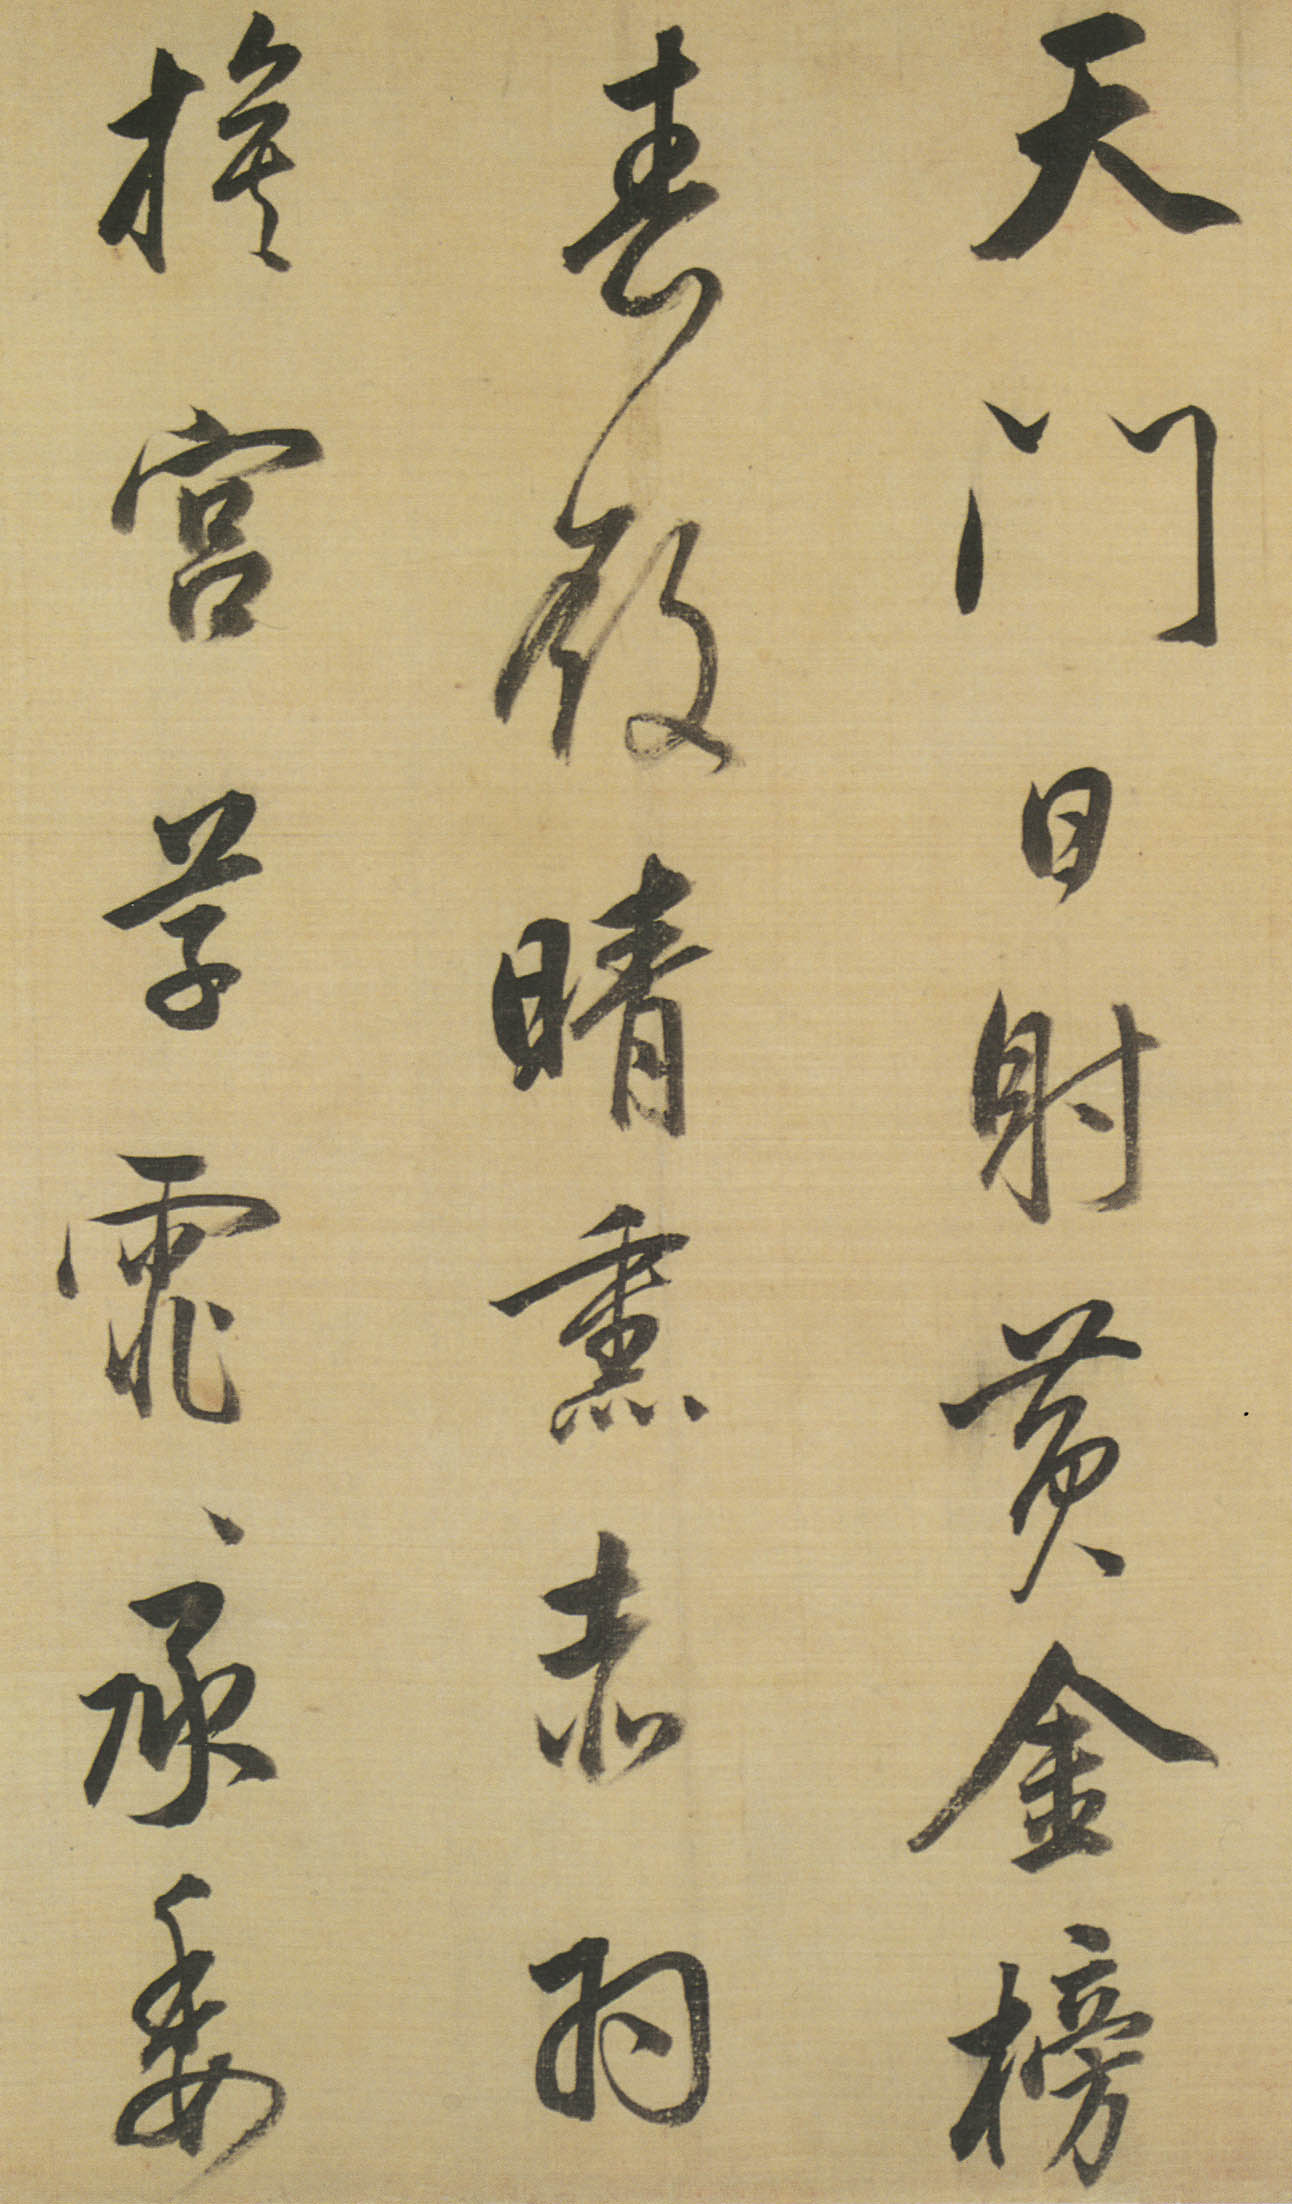 天門日射黄金榜
春殿晴熏赤羽
旗宫草霏〻承委